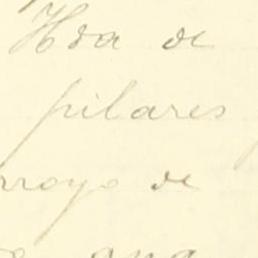 Hda de
pilares
rroyo de